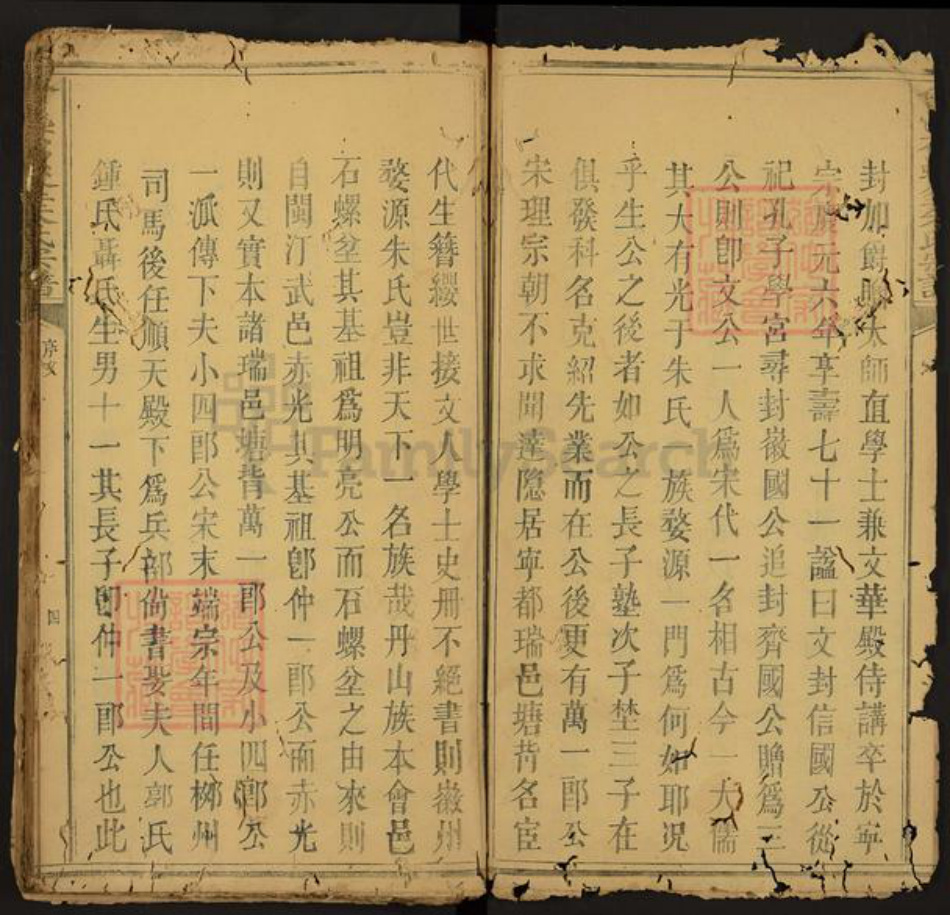 封加爵贈太師直學士兼文華殿侍講卒於寧
宗慶元六年享壽七十一諡曰文封信國公從
祀孔子學宮尋封徽國公追封齊國公贈爲三
公則卽文公一人爲宋代一名相古今一大儒
其大有光于朱氏 族婺源一門爲何如耶况
乎生公之後者如公之長子塾次子埜三子在
俱發科名克紹先業而在公後更有萬一郎公
宋理宗朝不求聞達隱居寧都瑞邑塘背名宦
代生簪纓世接文人學士史册不絕書則徽州
婺源朱氏豈非天下一名族哉丹山族本會邑
石螺坌其基祖爲明亮公而石螺坌之由來則
自閩汀武邑赤光其基祖卽仲一郎公而赤光
則又實本諸瑞邑塘背萬一郎公及小四郎公
一派傳下夫小四郎公宋末端宗年間任柳州
司馬後任順天殿下爲兵部尙書娶夫人郭氏
鍾氏聶氏生男十一其長子卽仲一郎公也此
序文
四
FamilySearch